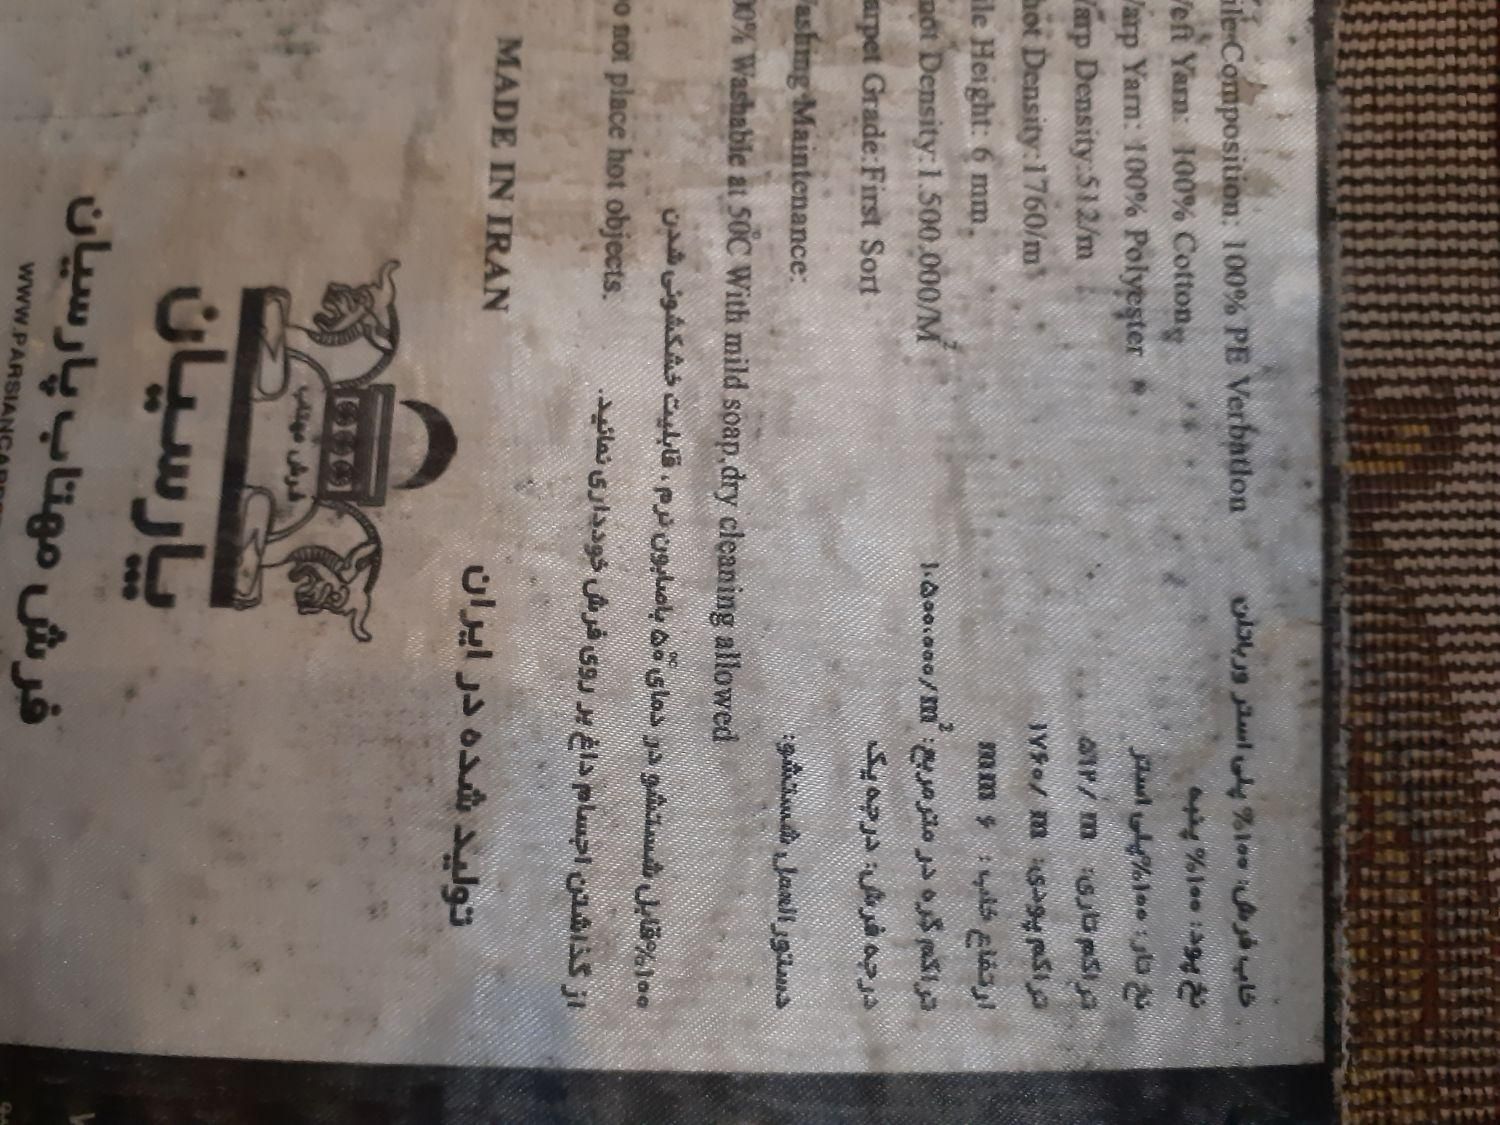 Composition: 100% PE Verbation
خاب فرش: ۱۰۰% پلی استر ورباتان
Yarn: 100% Cotton
نخ پود: ۱۰۰% پنبه
Warp Yarn: 100% Polyester
نخ تار: ۱۰۰%پلی استر
Warp Density:512/m
تراکم تاری: ۵۱۲/ m
hot Density:1760/m
تراکم پودی: ۱۷۶۰/ m
ile Height: 6 mm
ارتفاع خاب : ۶ mm
not Density:1.500.000/M²
تراکم گره در مترمربع: ۱.۵۰۰.۰۰۰/m²
arpet Grade:First Sort
درجه فرش: درجه یک
ashing Maintenance:
دستورالعمل شستشو:
00% Washable at 50°C With mild soap,dry cleaning allowed
۱۰۰%قابل شستشو در دمای ۵۰° باصابون نرم ، قابلیت خشکشوئی شدن
o not place hot objects.
از گذاشتن اجسام داغ بر روی فرش خودداری نمائید.
MADE IN IRAN
تولید شده در ایران
فرش مهتاب
پارسیان
فرش مهتاب پارسیان
WWW.PARSIANCARP